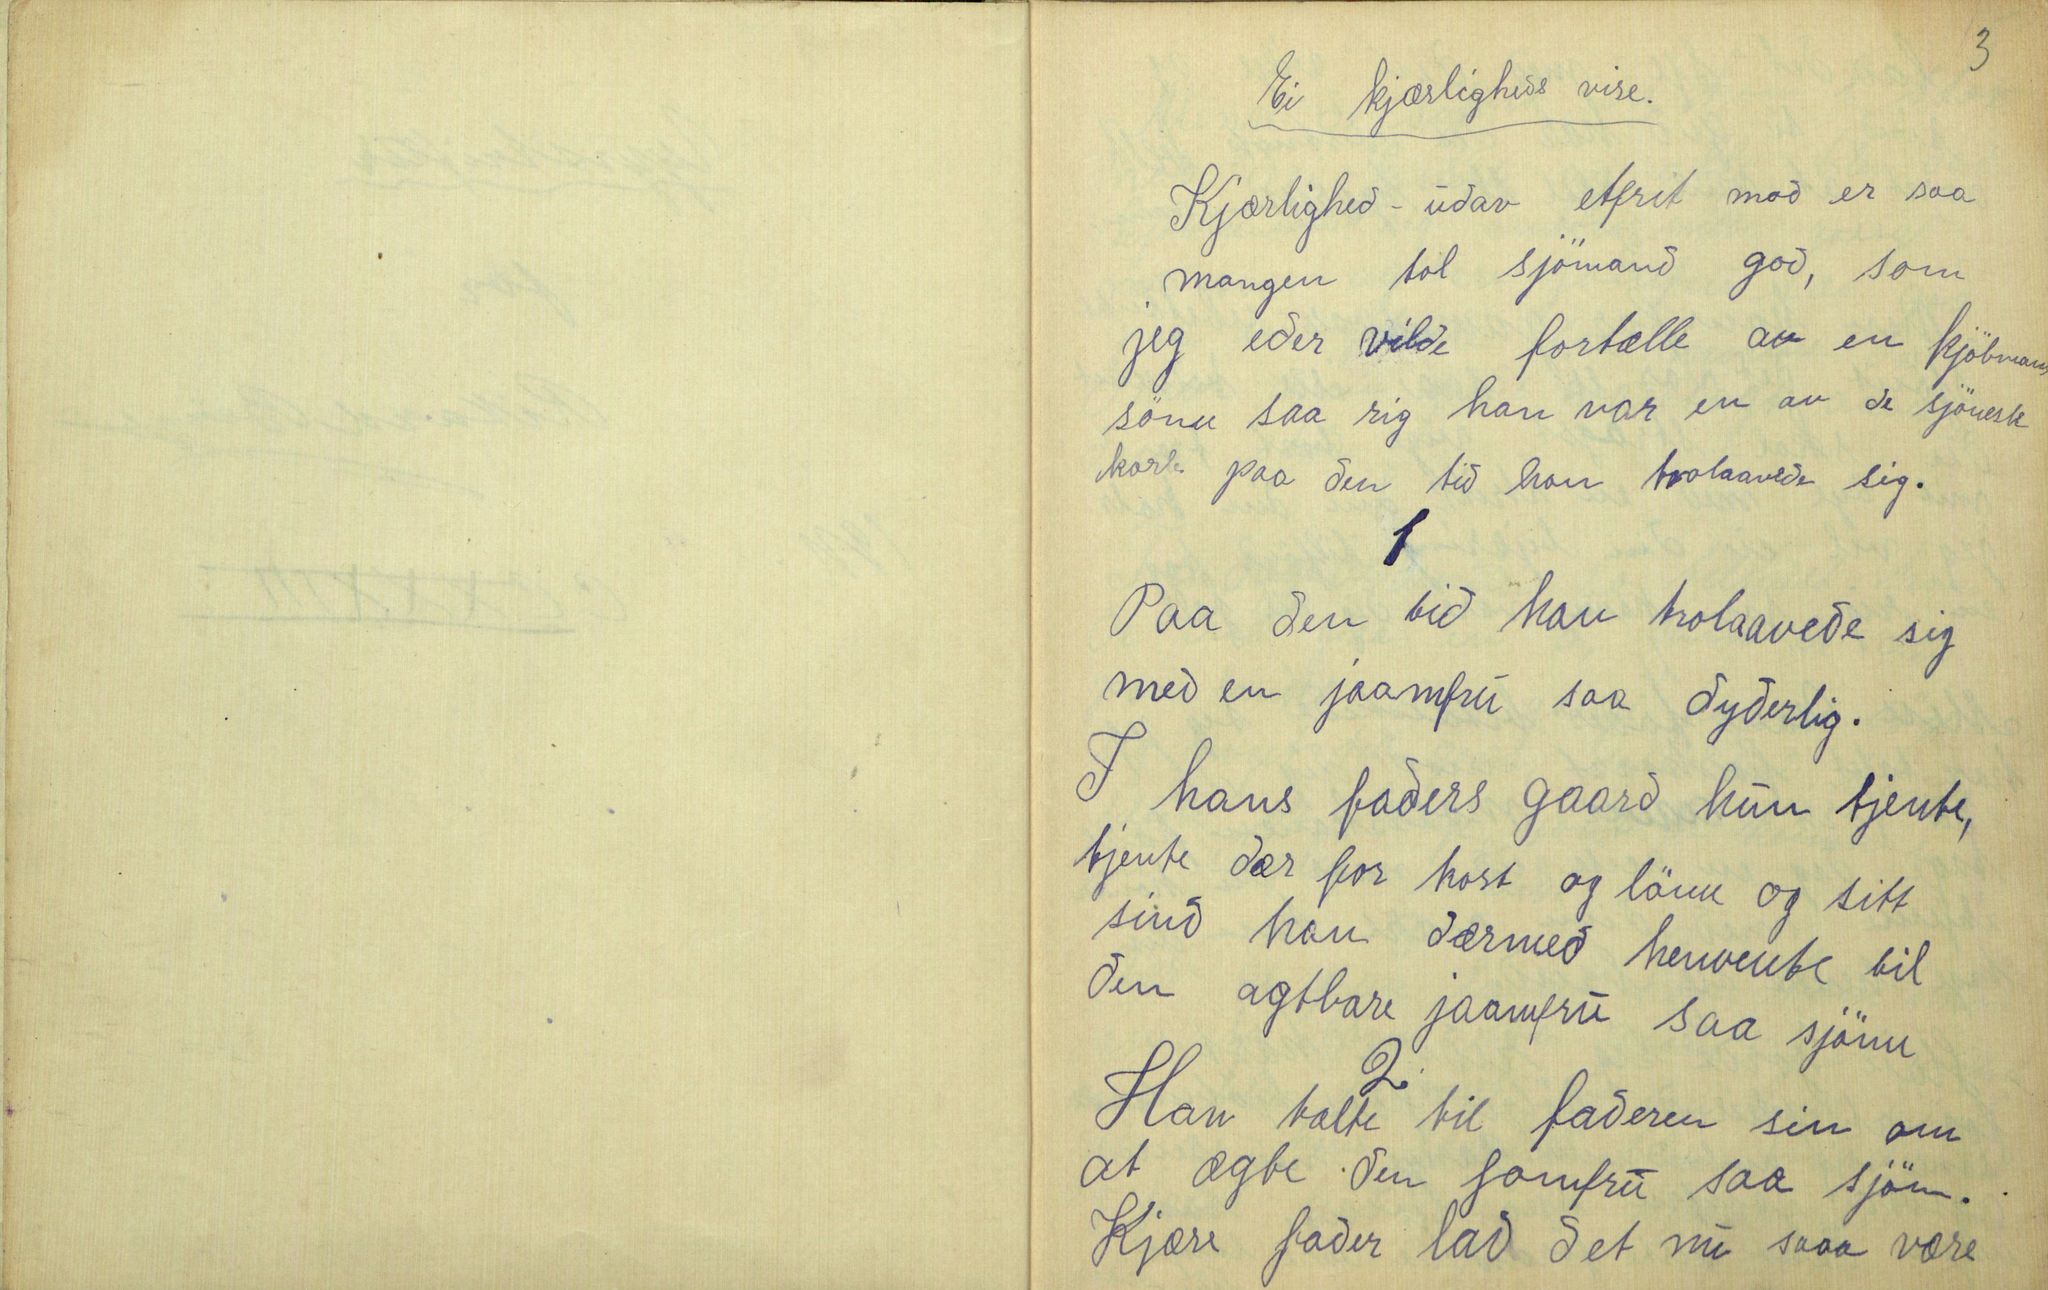 3
Ei kjærligheds vise.
Kjærlighed - udav etfrit mod er saa
mangen tol sjömand god, som
jeg eder vilde fortælle av en kjöbmans
sönn saa rig han var en av de sjöneste
karle paa den tid han trolaavede sig.
1
Paa den tid han trolaavede sig
med en jaamfru saa dyderlig.
I hans faders gaard hun tjente,
tjente dær for kost og lönn og sitt
sind han dærmed henvente til
den agtbare jaamfru saa sjönn
2.
Han talte til faderen sin om
at ægte den jomfru saa sjön.
Kjære fader lad det nu saaa være